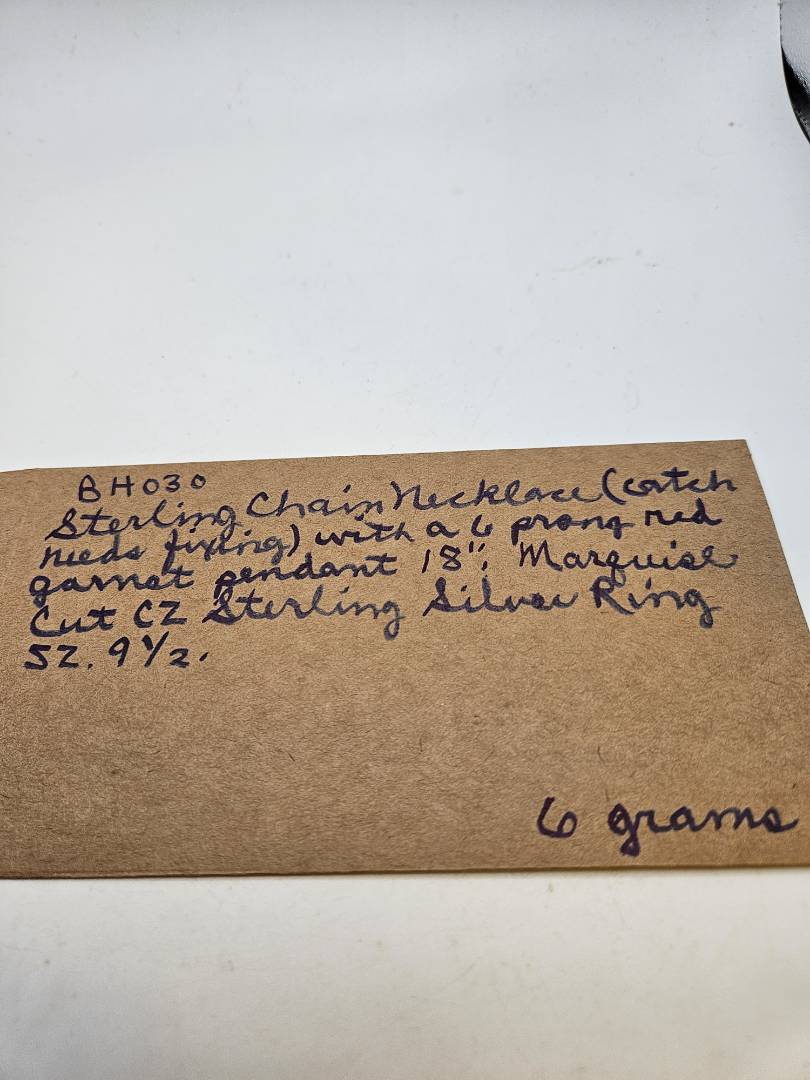 BH030
Sterling Chain Necklace (catch
needs fixing) with a 6 prong red
garnet pendant 18"; Marquise
Cut CZ Sterling Silver Ring
SZ. 9 1/2.
6 grams